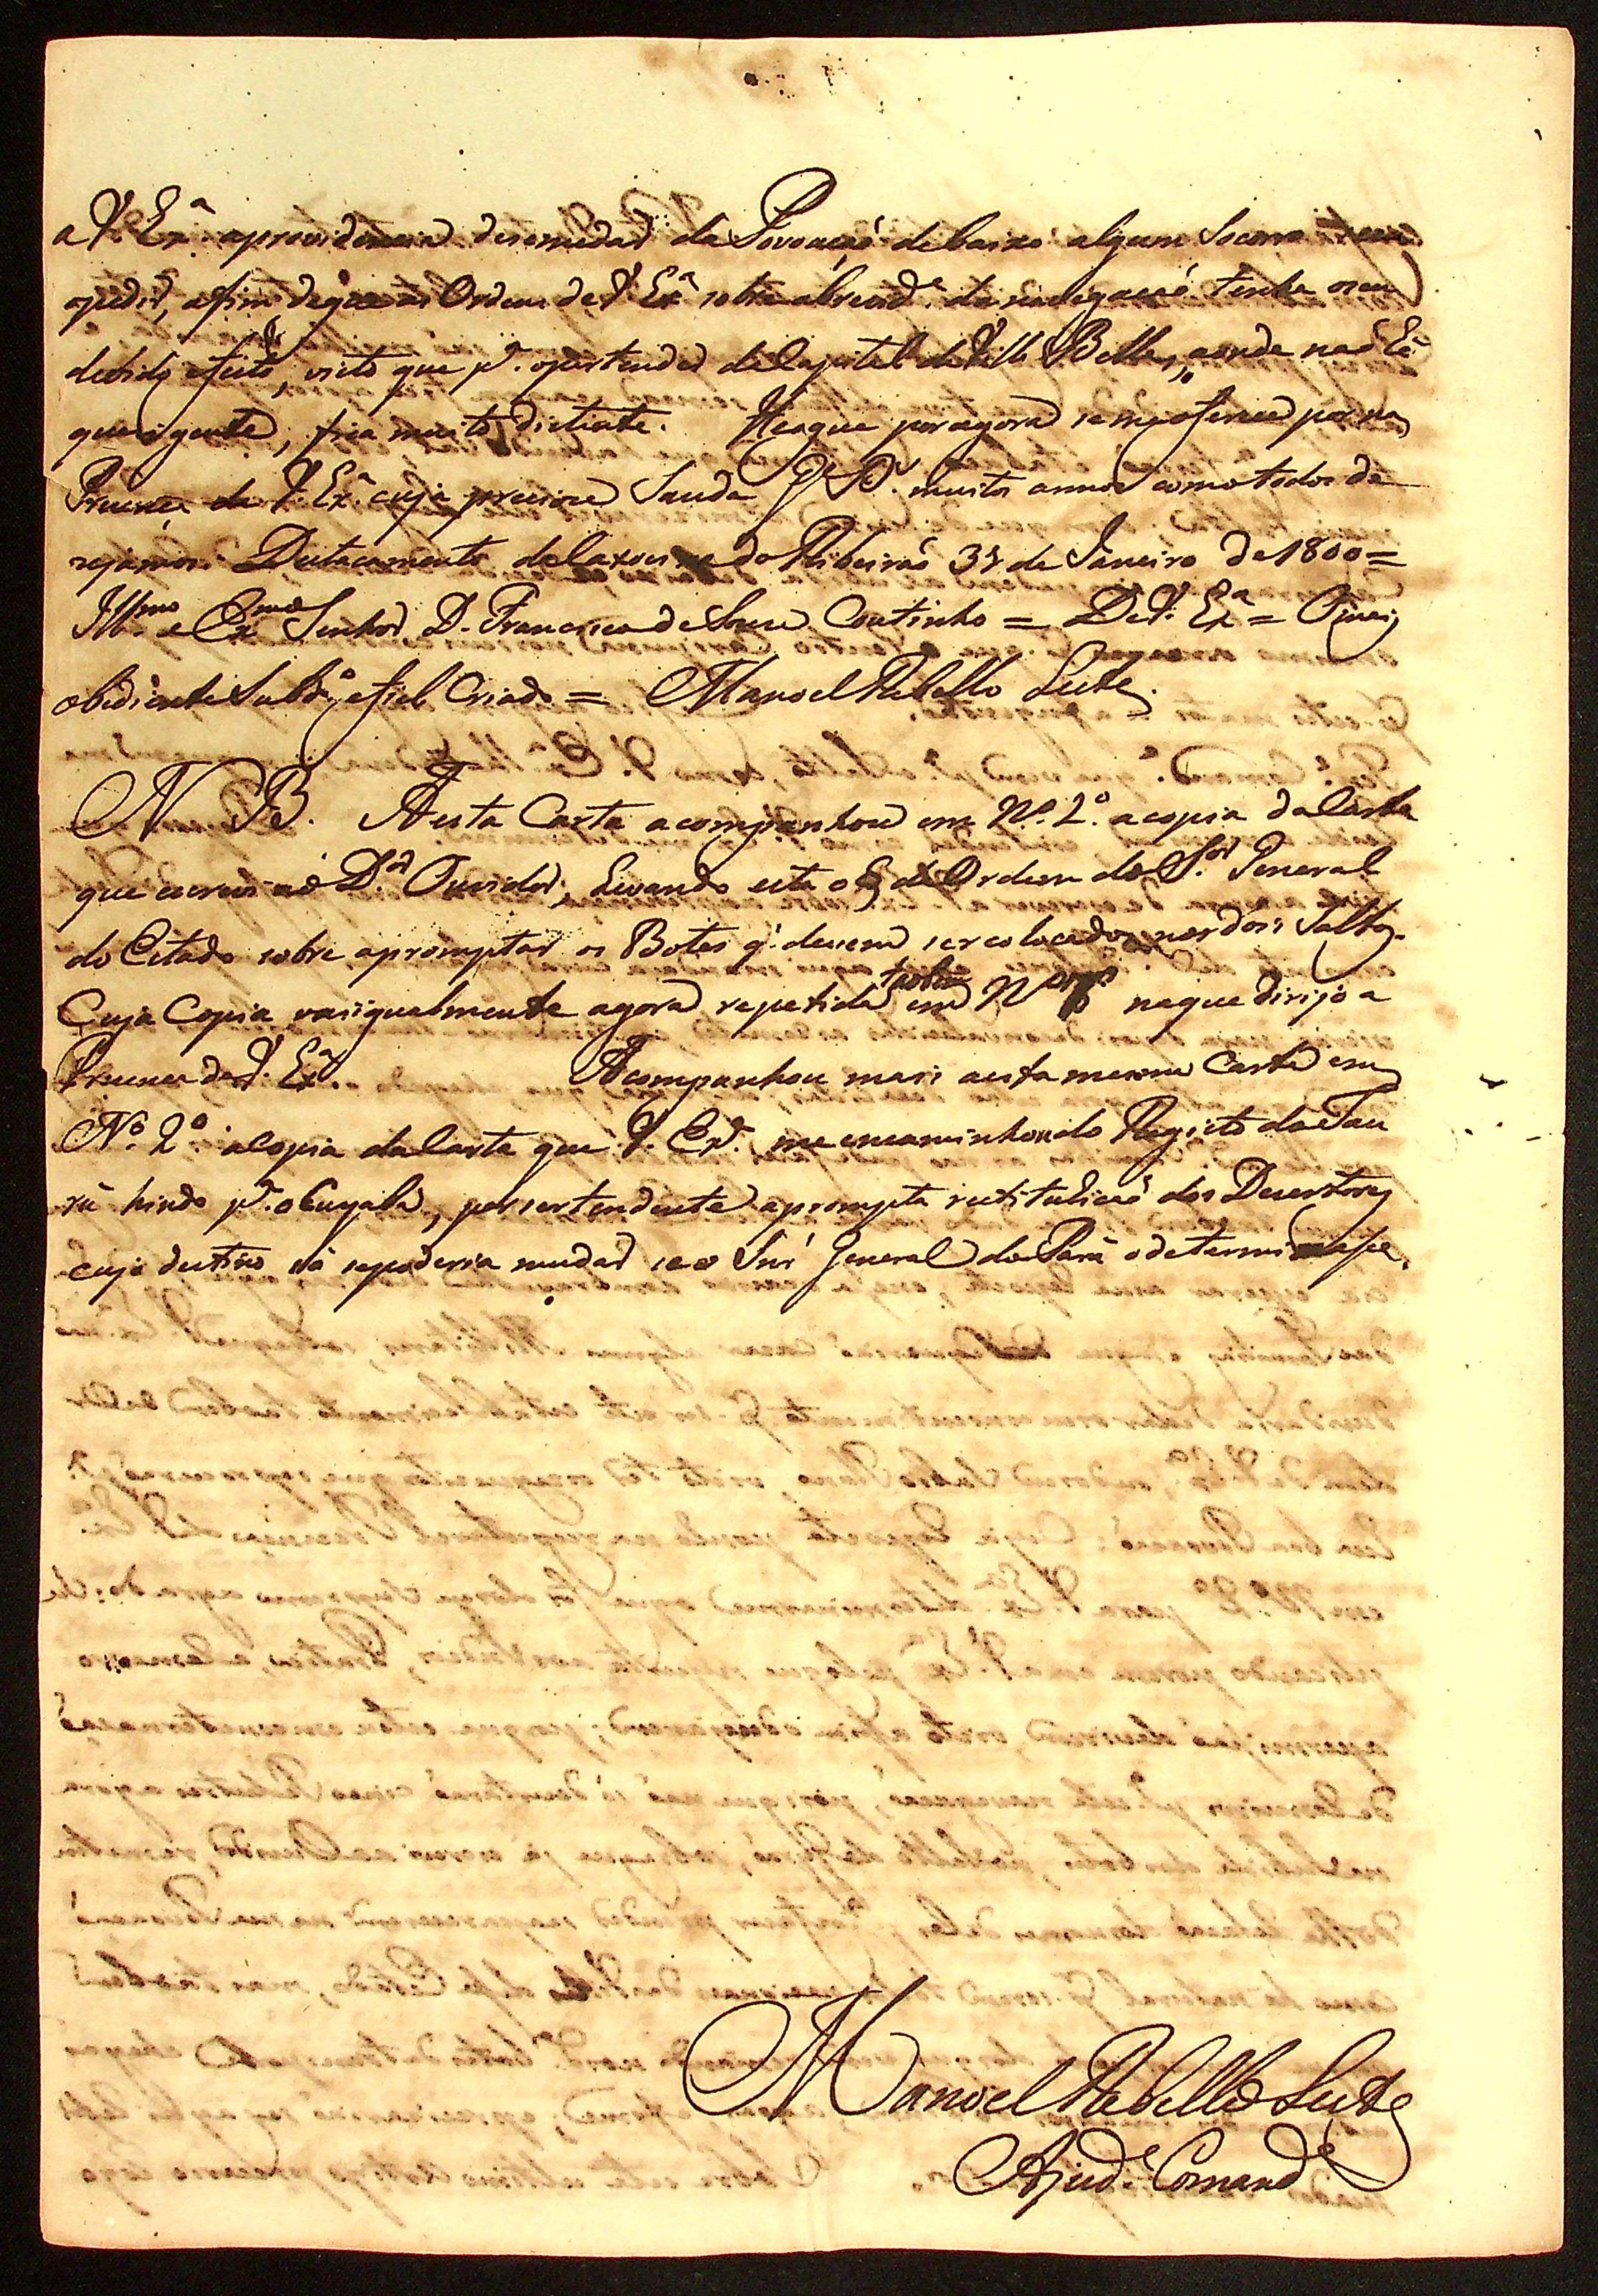 a V. Ex.ª aprovidencia deremedar da Povoaçaõ debaixo algum Socorro
opedir, afim deque as Ordens de V. Ex.ª sobre abrevid.e danavegacaõ tenha oseu
devido efeito, visto que p.ª opertender daCapital de Villa Bella, aonde naõ há
quazi gente, fica muito distante. He oque por agora semeoferece por na
Prezença de V. Ex.ª cuja precioza Saude G.e D.s muitos annos como todos de
zejamos. Destacamento daCaxoeira do Ribeiraõ 31 de Janeiro de 1800 =
Ill.mo e Ex.mo Senhor D. Francisco de Souza Coutinho = De V. Ex.ª = Omais
obediente Subd.º efiel Criado = Manoel Rebello Leite.
N B. Aesta Carta acompanhou em N.º 2.º acopia daCarta
que escrevi aó D.or Ouvidor, Levando esta o § da Ordem do S.or General
do Estado sobre apromptar os Botes q. devem ser colocados nos dois Saltos.
Cuja Copia vai igualmente agora repetida em N naque dirijo a
Prezença de V. Ex.ª. Acompanhou mais aesta mesma Carta em
N.º 2.º aCopia daCarta que V. Ex.ª me encaminhou do Registo do Jau
rú hindo p.ª oCuyabá, pertendente aprompta restituhicaõ dos Desertores
cujo destino só sepoderia mudar se o Snr General do Pará odeterminasse.
Manoel Rebello Leite
Ajud.e Comand.e